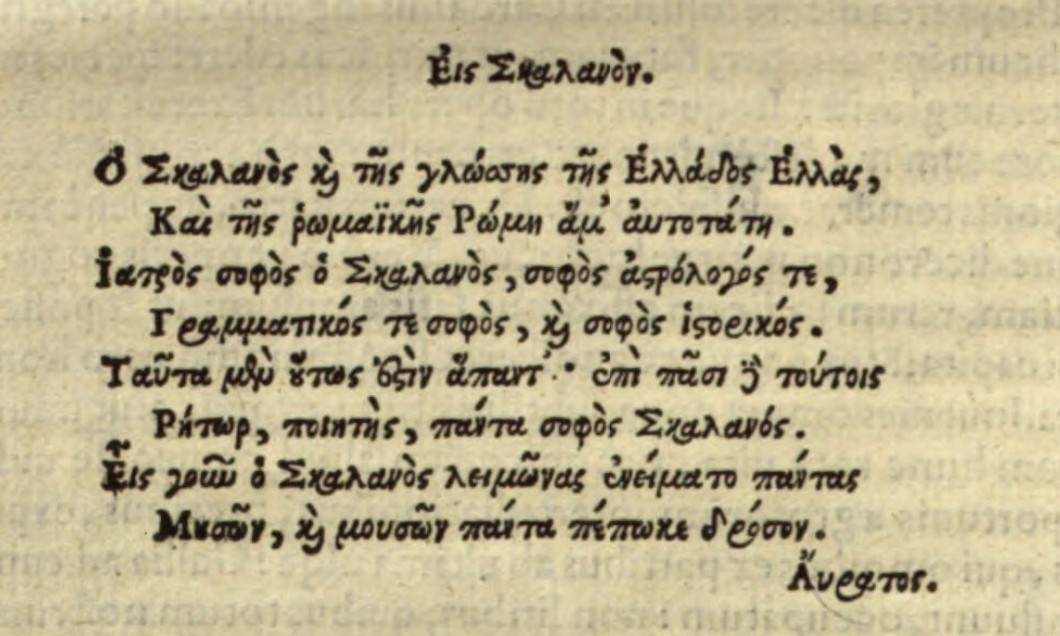 Εἰς Σκαλανὸν.
Ὁ Σκαλανὸς καὶ τῆς γλώσσης τῆς Ἑλλάδος Ἑλλὰς,
Καὶ τῆς ῥωμαϊκῆς Ῥώμη ἅμ' ἀυτοτάτη.
Ἰατρὸς σοφὸς ὁ Σκαλανὸς, σοφὸς ἀστρόλογός τε,
Γραμματικός τε σοφὸς, καὶ σοφὸς ἱστορικός.
Ταῦτα μὲν οὕτως ἐστὶν ἅπαντ'· ἐπὶ πᾶσι δὲ τούτοις
Ῥήτωρ, ποιητὴς, πάντα σοφὸς Σκαλανός.
Εἷς γοῦν ὁ Σκαλανὸς λειμῶνας ἐνείματο πάντας
Μουσῶν, καὶ μουσῶν πάντα πέπωκε δρόσον.
Ἄυρατος.